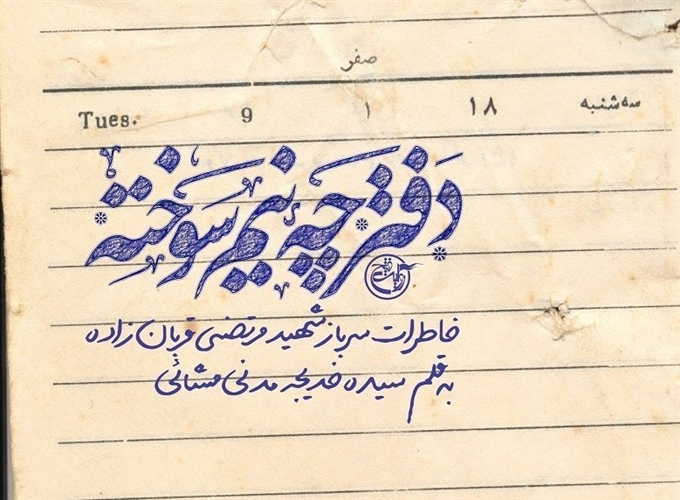 صفر
سه‌شنبه ۱۸ ۱ 9 Tues.
دفترچه نیم سوخته
خاطرات سرباز شهید مرتضی قربان زاده
به قلم سیده خدیجه مدنی مشائی